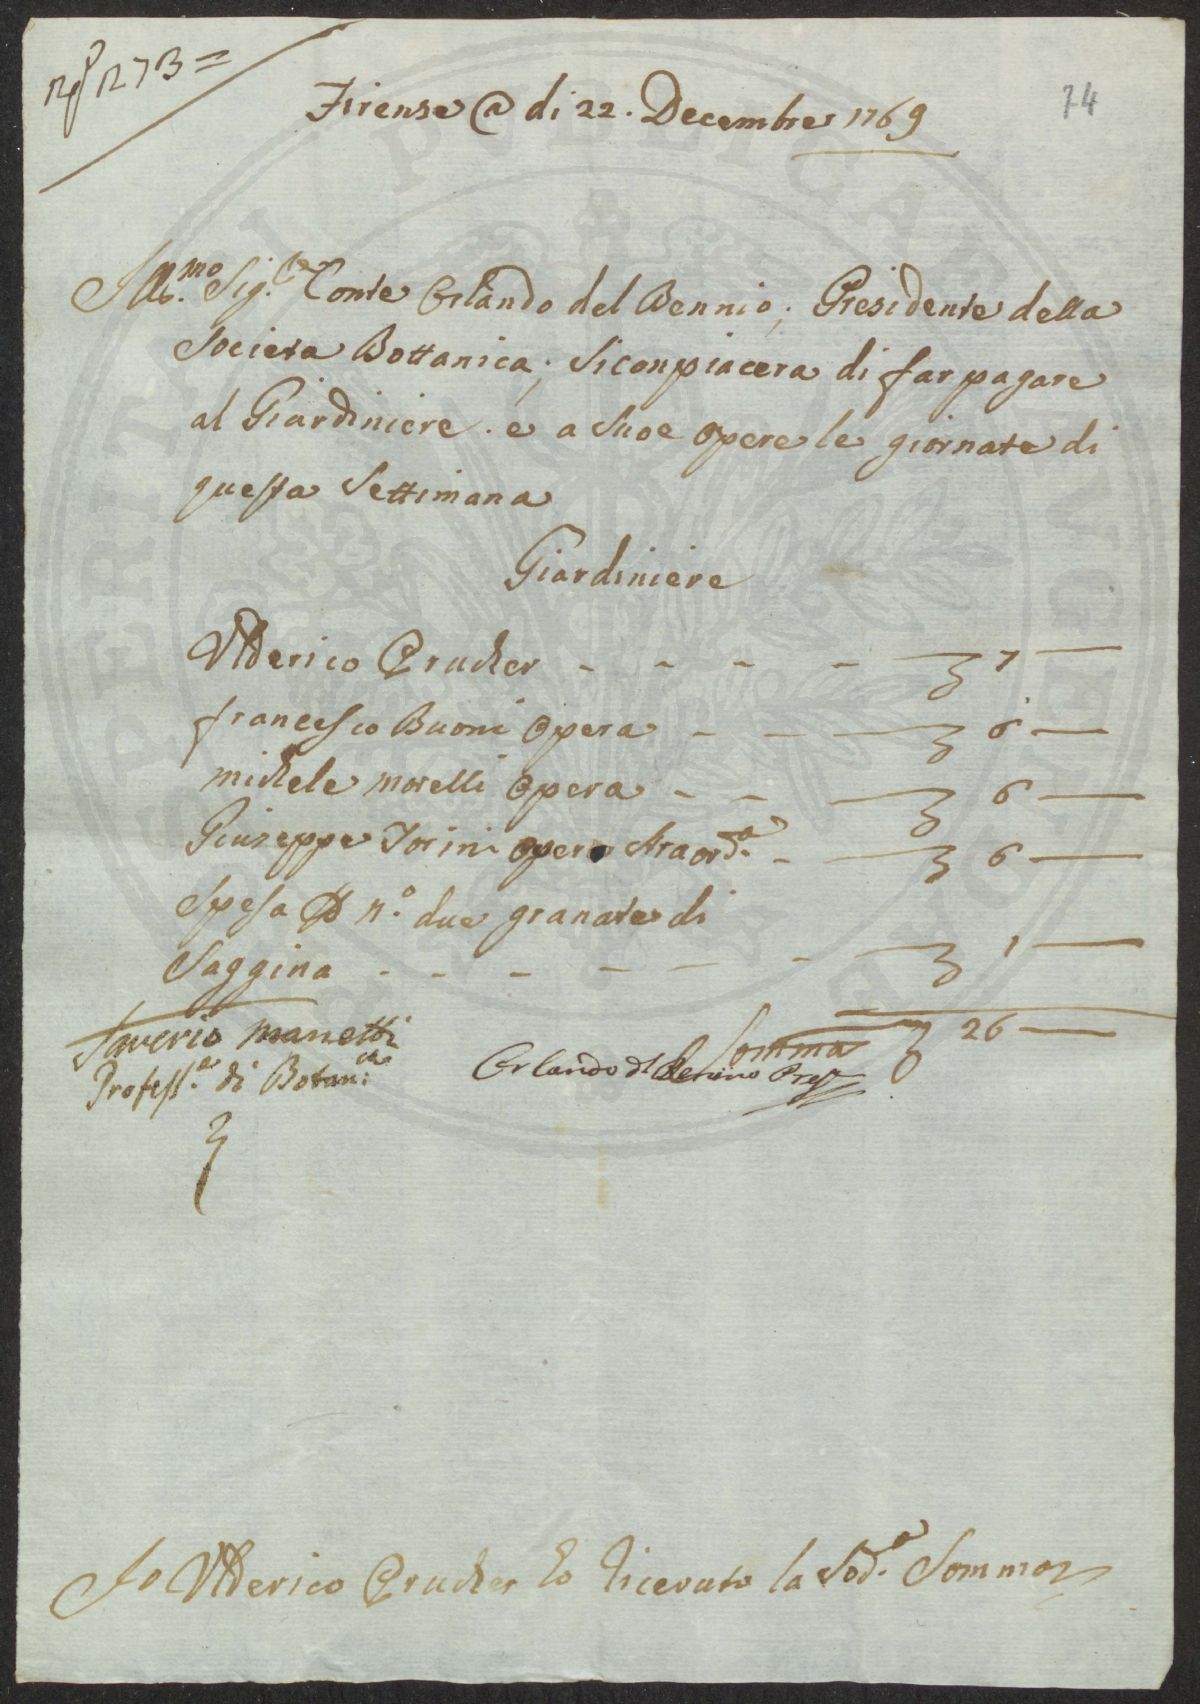 273 =
74
Firense @ di 22. Decembre 1769
Ill.mo Sig.re Conte Orlando del Bennio; Presidente della
Societa Bottanica; Siconpiacera di far pagare
al Giardiniere e a Suoe opere le giornate di
questa Settimana
Giardiniere
Ulderico Prucker - - - - 7
francesco Buoni Opera - - 6
michele morelli Opera - - 6
Giuseppe Torini opera straord.a - 6
Spesa P n.o due granate di
Saggina - - - - - - 1
Somma 26
Saverio Manetti
Profess.e di Botan:ca
Orlando dl Benino Pres.
Io Ulderico Prucker ho Ricevuto la Sod.a Somma